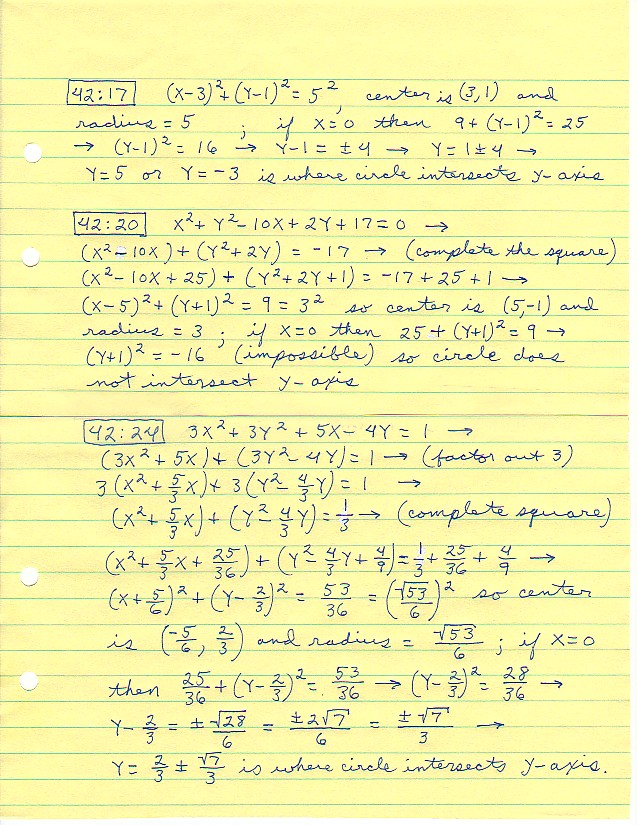 42:17 (X-3)²+(Y-1)²=5², center is (3,1) and
radius = 5 ; if X=0 then 9+(Y-1)²=25
→ (Y-1)²=16 → Y-1=±4 → Y=1±4 →
Y=5 or Y=-3 is where circle intersects y-axis
42:20 X²+Y²-10X+2Y+17=0 →
(X²-10X)+(Y²+2Y) = -17 → (complete the square)
(X²-10X+25)+(Y²+2Y+1)=-17+25+1 →
(X-5)²+(Y+1)²=9=3² so center is (5,-1) and
radius = 3 ; if X=0 then 25+(Y+1)²=9 →
(Y+1)²=-16 (impossible) so circle does
not intersect y-axis
42:24 3X²+3Y²+5X-4Y=1 →
(3X²+5X)+(3Y²-4Y)=1 → (factor out 3)
3(X²+5/3X)+3(Y²-4/3Y)=1 →
(X²+5/3X)+(Y²-4/3Y)=1/3 → (complete square)
(X²+5/3X+25/36)+(Y²-4/3Y+4/9)=1/3+25/36+4/9 →
(X+5/6)²+(Y-2/3)²=53/36=(√53/6)² so center
is (-5/6, 2/3) and radius = √53/6 ; if X=0
then 25/36+(Y-2/3)²=53/36 → (Y-2/3)²=28/36 →
Y-2/3=±√28/6=±2√7/6=±√7/3 →
Y=2/3±√7/3 is where circle intersects y-axis.